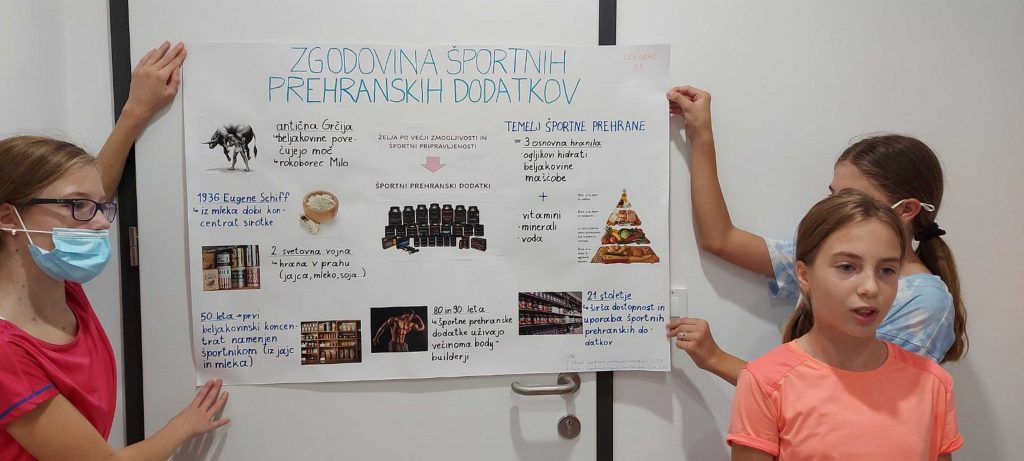 ZGODOVINA ŠPORTNIH
PREHRANSKIH DODATKOV
antična Grčija
↳ beljakovine pove-
čujejo moč
↳ rokoborec Milo
1936 Eugene Schiff
↳ iz mleka dobi kon-
centrat sirotke
2. svetovna vojna
↳ hrana v prahu
(jajca, mleko, soja..)
50. leta → prvi
beljakovinski koncen-
trat namenjen
športnikom (iz jajc
in mleka)
ŽELJA PO VEČJI ZMOGLJIVOSTI IN
ŠPORTNI PRIPRAVLJENOSTI
ŠPORTNI PREHRANSKI DODATKI
80 in 90. leta
↳ športne prehranske
dodatke uživajo
večinoma body-
builderji
TEMELJI ŠPORTNE PREHRANE
= 3 osnovna hranila
· ogljikovi hidrati
· beljakovine
· maščobe
+
· vitamini
· minerali
· voda
21. stoletje
↳ širša dostopnost in
uporaba športnih
prehranskih do-
datkov